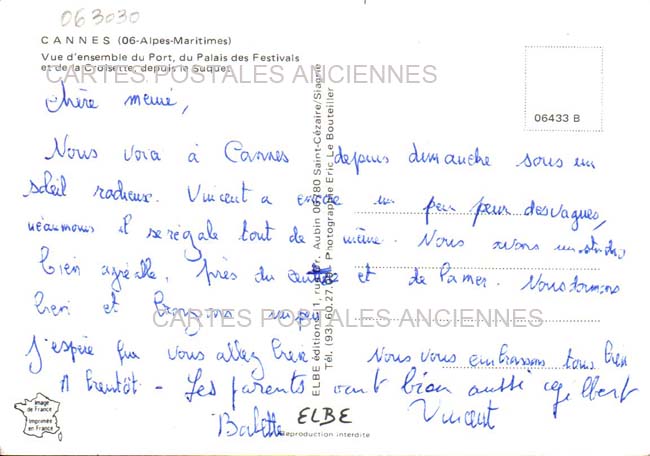 063030
CANNES (06-Alpes-Maritimes)
Vue d'ensemble du Port, du Palais des Festivals
et de la Croisette, depuis le Suquet
CARTES POSTALES ANCIENNES
06433 B
chère mémé,
Nous voici à Cannes depuis dimanche sous un
soleil radieux. Vincent a encore un peu peur des vagues,
néanmoins il se régale tout de même. Nous avons un studio
bien agréable, près du centre et de la mer. Nous dormons
bien et bronzons un peu
CARTES POSTALES ANCIENNES
J'espère que vous allez bien Nous vous embrassons tous bien
A bientôt - Les parents vont bien aussi Gilbert
Vincent
ELBE
Reproduction interdite
Image
de France
Imprimée
en France
ELBE éditions, 1, rue Aubin 06780 Saint-Cézaire/Siagne
Tél. (93) 60.27. Photographe Eric Le Bouteiller